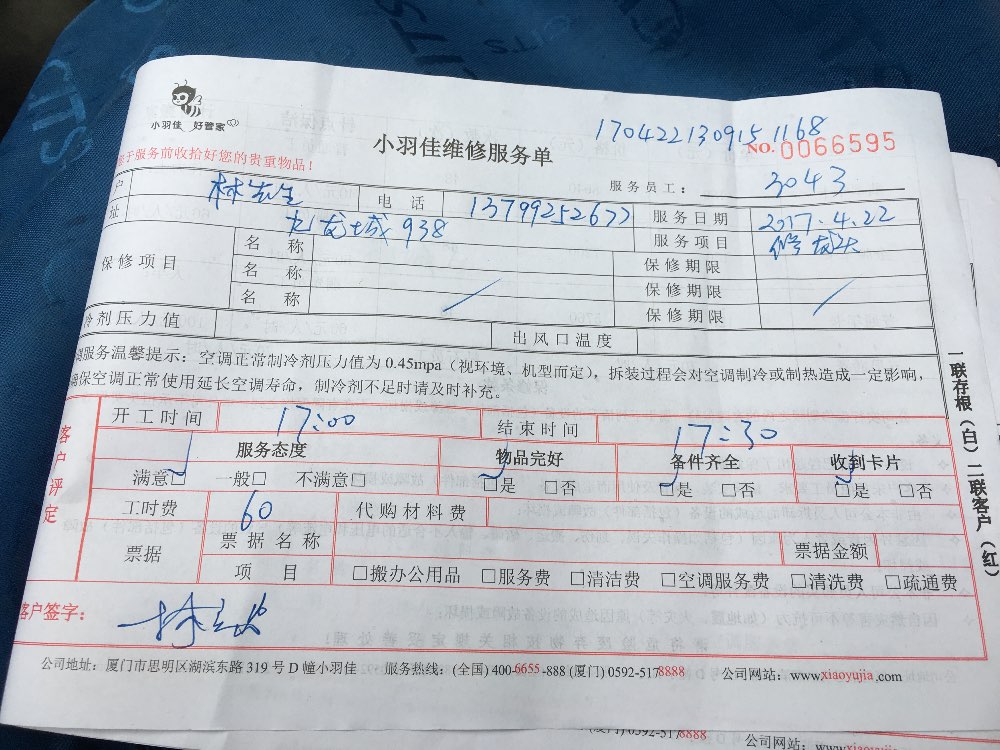 小羽佳 好管家
170422130915 1168
小羽佳维修服务单
NO. 0066595
于服务前收拾好您的贵重物品！
服务员工： 3043
户 林先生 电 话 13799252677 服务日期 2017.4.22
址 九龙城 938 服务项目 修龙头
保修项目 名 称 保修期限
名 称 保修期限
名 称 保修期限
冷剂压力值 出风口温度
调服务温馨提示：空调正常制冷剂压力值为 0.45mpa（视环境、机型而定），拆装过程会对空调制冷或制热造成一定影响，
确保空调正常使用延长空调寿命，制冷剂不足时请及时补充。
客户评定
开工时间 17:00 结束时间 17:30
服务态度 物品完好 备件齐全 收到卡片
满意□ 一般□ 不满意□ □是 □否 □是 □否 □是 □否
工时费 60 代购材料费
票据 票据名称 票据金额
项 目 □搬办公用品 □服务费 □清洁费 □空调服务费 □清洗费 □疏通费
客户签字：
一联存根（白）二联客户（红）
公司地址：厦门市思明区湖滨东路 319 号 D 幢小羽佳 服务热线：(全国) 400-6655-888 (厦门) 0592-5178888 公司网站：www.xiaoyujia.com
(厦门) 0592-5178888 公司网站：www.xiaoyujia